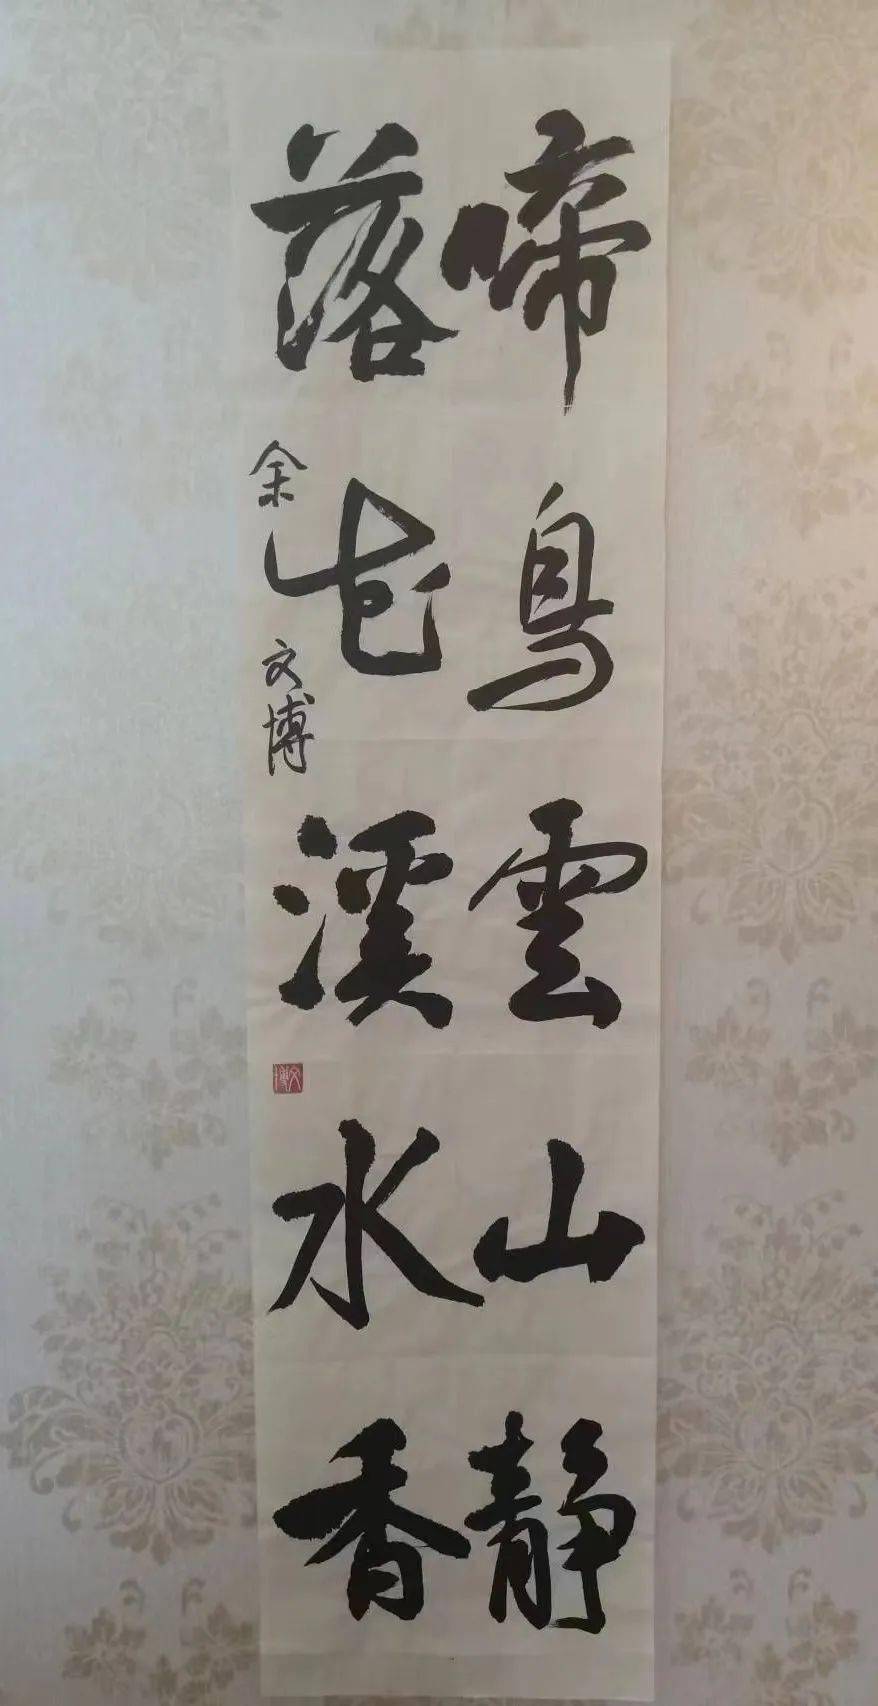 啼鳥雲山静
落花溪水香
余文博
文博